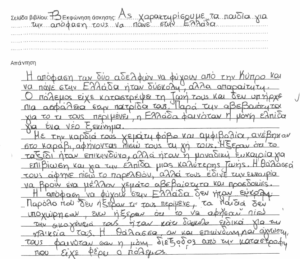 Σελίδα βιβλίου: Β Εκφώνηση άσκησης: Ας χαρακτηρίσουμε τα παιδιά για
την απόφασή τους να πάνε στην Ελλάδα
Απάντηση
Η απόφαση των δύο αδελφών να φύγουν από την Κύπρο και
να πάνε στην Ελλάδα ήταν δύσκολη, αλλά απαραίτητη.
Ο πόλεμος είχε καταστρέψει τη ζωή τους και δεν υπήρχε
πια ασφάλεια στην πατρίδα τους. Παρά την αβεβαιότητα
για το τι τους περιμένει, η Ελλάδα φαινόταν η μόνη ελπίδα
για ένα νέο ξεκίνημα.
Με την καρδιά τους γεμάτη φόβο και αμφιβολία, ανέβηκαν
στο καράβι, αφήνοντας πίσω τους τη ζωή τους. Ήξεραν ότι το
ταξίδι ήταν επικίνδυνο, αλλά ήταν η μοναδική ευκαιρία για
επιβίωση και για την ελπίδα μιας καλύτερης ζωής. Η θάλασσα
τους άφησε πίσω το παρελθόν, αλλά τους έδινε την ευκαιρία
να βρουν ένα μέλλον γεμάτο αβεβαιότητα και προσδοκίες.
Η απόφαση να φύγουν στην Ελλάδα δεν ήταν εύκολη.
Παρόλο που δεν ήξεραν τι τους περίμενε, τα παιδιά δεν
υποχώρησαν ενώ ήξεραν ότι το να αφήσουν πίσω
την οικογένειά τους ήταν κάτι δύσκολο ειδικά για την
ηλικία τους. Η θάλασσα, αν και επικίνδυνη και άγνωστη,
τους φαινόταν σαν η μόνη διέξοδος από την καταστροφή
που είχε φέρει ο πόλεμος